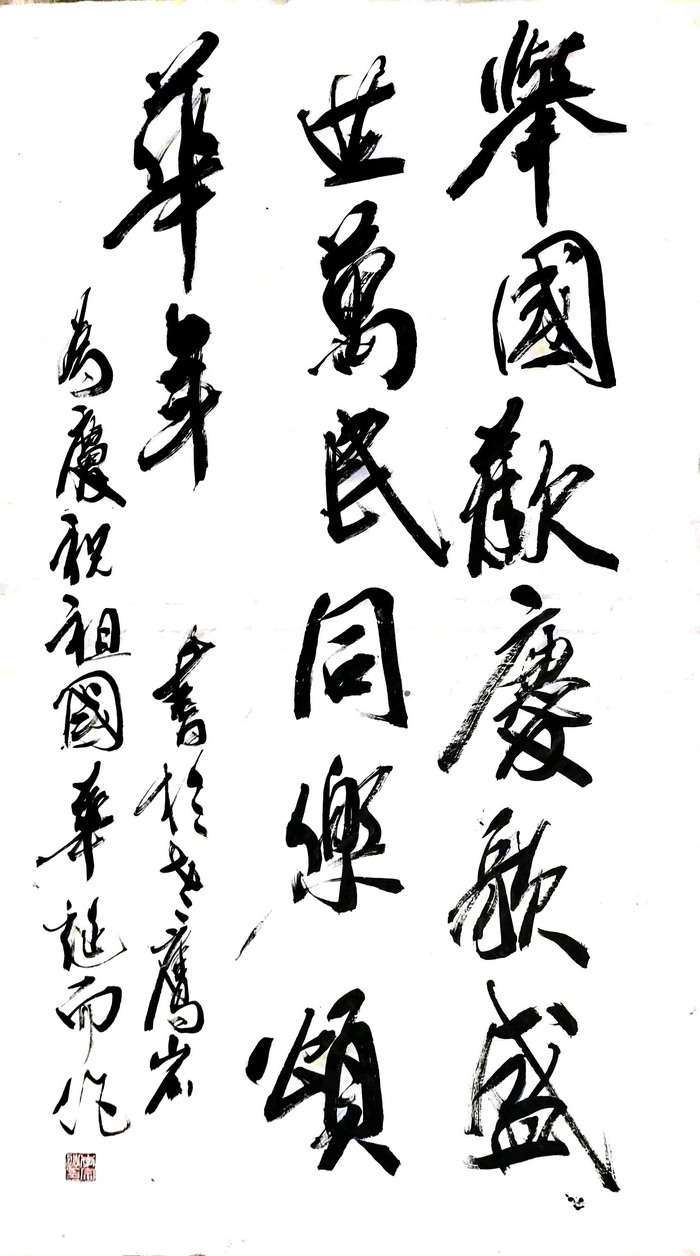 舉國歡慶歌盛
世萬民同樂頌
華年
書於老鷹岩
為慶祝祖國華誕而作